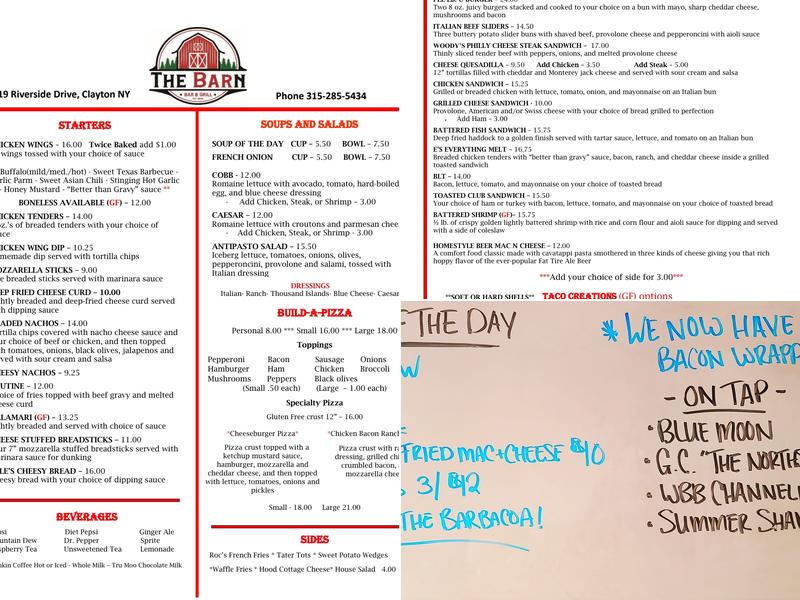 THE BARN
BAR & GRILL
19 Riverside Drive, Clayton NY
Phone 315-285-5434
STARTERS
ICKEN WINGS – 16.00 Twice Baked add $1.00
wings tossed with your choice of sauce
Buffalo(mild/med./hot) - Sweet Texas Barbecue -
rlic Parm - Sweet Asian Chili - Stinging Hot Garlic
- Honey Mustard - "Better than Gravy" sauce **
BONELESS AVAILABLE (GF) – 12.00
ICKEN TENDERS – 14.00
oz.'s of breaded tenders with your choice of
uce
ICKEN WING DIP – 10.25
memade dip served with tortilla chips
OZZARELLA STICKS – 9.00
e breaded sticks served with marinara sauce
EEP FRIED CHEESE CURD – 10.00
htly breaded and deep-fried cheese curd served
th dipping sauce
ADED NACHOS – 14.00
rtilla chips covered with nacho cheese sauce and
ur choice of beef or chicken, and then topped
th tomatoes, onions, black olives, jalapenos and
rved with sour cream and salsa
EESY NACHOS – 9.25
UTINE – 12.00
oice of fries topped with beef gravy and melted
eese curd
LAMARI (GF) – 13.25
htly breaded and served with choice of sauce
EESE STUFFED BREADSTICKS – 11.00
ur 7" mozzarella stuffed breadsticks served with
rinara sauce for dunking
LE'S CHEESY BREAD – 16.00
eesy bread with your choice of dipping sauce
BEVERAGES
psi Diet Pepsi Ginger Ale
untain Dew Dr. Pepper Sprite
spberry Tea Unsweetened Tea Lemonade
nkin Coffee Hot or Iced - Whole Milk – Tru Moo Chocolate Milk
SOUPS AND SALADS
SOUP OF THE DAY CUP – 5.50 BOWL – 7.50
FRENCH ONION CUP – 5.50 BOWL – 7.50
COBB - 12.00
Romaine lettuce with avocado, tomato, hard-boiled
egg, and blue cheese dressing
- Add Chicken, Steak, or Shrimp – 3.00
CAESAR – 12.00
Romaine lettuce with croutons and parmesan chee
- Add Chicken, Steak, or Shrimp - 3.00
ANTIPASTO SALAD – 15.50
Iceberg lettuce, tomatoes, onions, olives,
pepperoncini, provolone and salami, tossed with
Italian dressing
DRESSINGS
Italian- Ranch- Thousand Islands- Blue Cheese- Caesar
BUILD-A-PIZZA
Personal 8.00 *** Small 16.00 *** Large 18.00
Toppings
Pepperoni Bacon Sausage Onions
Hamburger Ham Chicken Broccoli
Mushrooms Peppers Black olives
(Small .50 each) (Large – 1.00 each)
Specialty Pizza
Gluten Free crust 12" – 16.00
*Cheeseburger Pizza* *Chicken Bacon Ranch
Pizza crust topped with a
ketchup mustard sauce,
hamburger, mozzarella and
cheddar cheese, and then topped
with lettuce, tomatoes, onions and
pickles
Pizza crust with ra
dressing, grilled chi
crumbled bacon,
mozzarella chee
Small - 18.00 Large 21.00
SIDES
Roc's French Fries * Tater Tots * Sweet Potato Wedges
*Waffle Fries * Hood Cottage Cheese* House Salad 4.00
Two 8 oz. juicy burgers stacked and cooked to your choice on a bun with mayo, sharp cheddar cheese,
mushrooms and bacon
ITALIAN BEEF SLIDERS – 14.50
Three buttery potato slider buns with shaved beef, provolone cheese and pepperoncini with aioli sauce
WOODY'S PHILLY CHEESE STEAK SANDWICH – 17.00
Thinly sliced tender beef with peppers, onions, and melted provolone cheese
CHEESE QUESADILLA – 9.50 Add Chicken – 3.50 Add Steak – 5.00
12" tortillas filled with cheddar and Monterey jack cheese and served with sour cream and salsa
CHICKEN SANDWICH – 15.25
Grilled or breaded chicken with lettuce, tomato, onion, and mayonnaise on an Italian bun
GRILLED CHEESE SANDWICH - 10.00
Provolone, American and/or Swiss cheese with your choice of bread grilled to perfection
• Add Ham – 3.00
BATTERED FISH SANDWICH – 15.75
Deep fried haddock to a golden finish served with tartar sauce, lettuce, and tomato on an Italian bun
E'S EVERYTHNG MELT – 16.75
Breaded chicken tenders with "better than gravy" sauce, bacon, ranch, and cheddar cheese inside a grilled
toasted sandwich
BLT – 14.00
Bacon, lettuce, tomato, and mayonnaise on your choice of toasted bread
TOASTED CLUB SANDWICH – 15.50
Your choice of ham or turkey with bacon, lettuce, tomato, and mayonnaise on your choice of toasted bread
BATTERED SHRIMP (GF)– 15.75
½ lb. of crispy golden lightly battered shrimp with rice and corn flour and aioli sauce for dipping and served
with a side of coleslaw
HOMESTYLE BEER MAC N CHEESE – 12.00
A comfort food classic made with cavatappi pasta smothered in three kinds of cheese giving you that rich
hoppy flavor of the ever-popular Fat Tire Ale Beer
***Add your choice of side for 3.00***
**SOFT OR HARD SHELLS** TACO CREATIONS (GF) options
THE DAY
W
FRIED MAC+CHEESE $10
3/$12
THE BARBACOA!
* WE NOW HAVE
BACON WRAPP
- ON TAP -
• BLUE MOON
• G.C. "THE NORTH
• WBB CHANNEL
• SUMMER SHAN